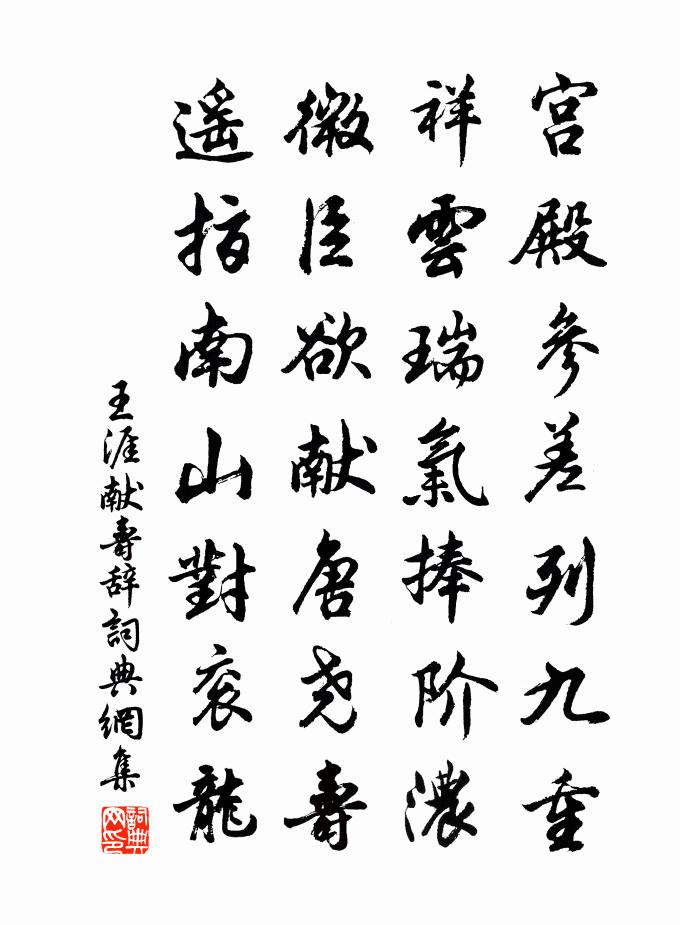 宫殿參差列九重
祥雲瑞氣捧阶濃
微臣欲献唐尧壽
遥指南山對衮龍
王涯献壽辞詞典網集
詞典网印